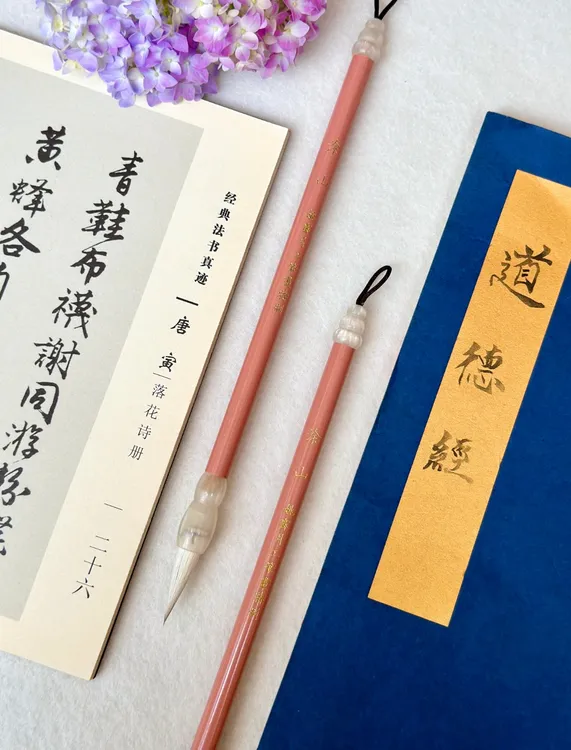 经典法书真迹｜唐寅｜落花诗册｜二十六
青鞋布襪謝同游粉
黄蜂各
道德經